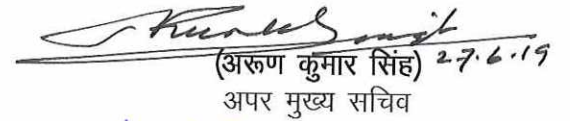 (अरूण कुमार सिंह) 27.6.19
अपर मुख्य सचिव